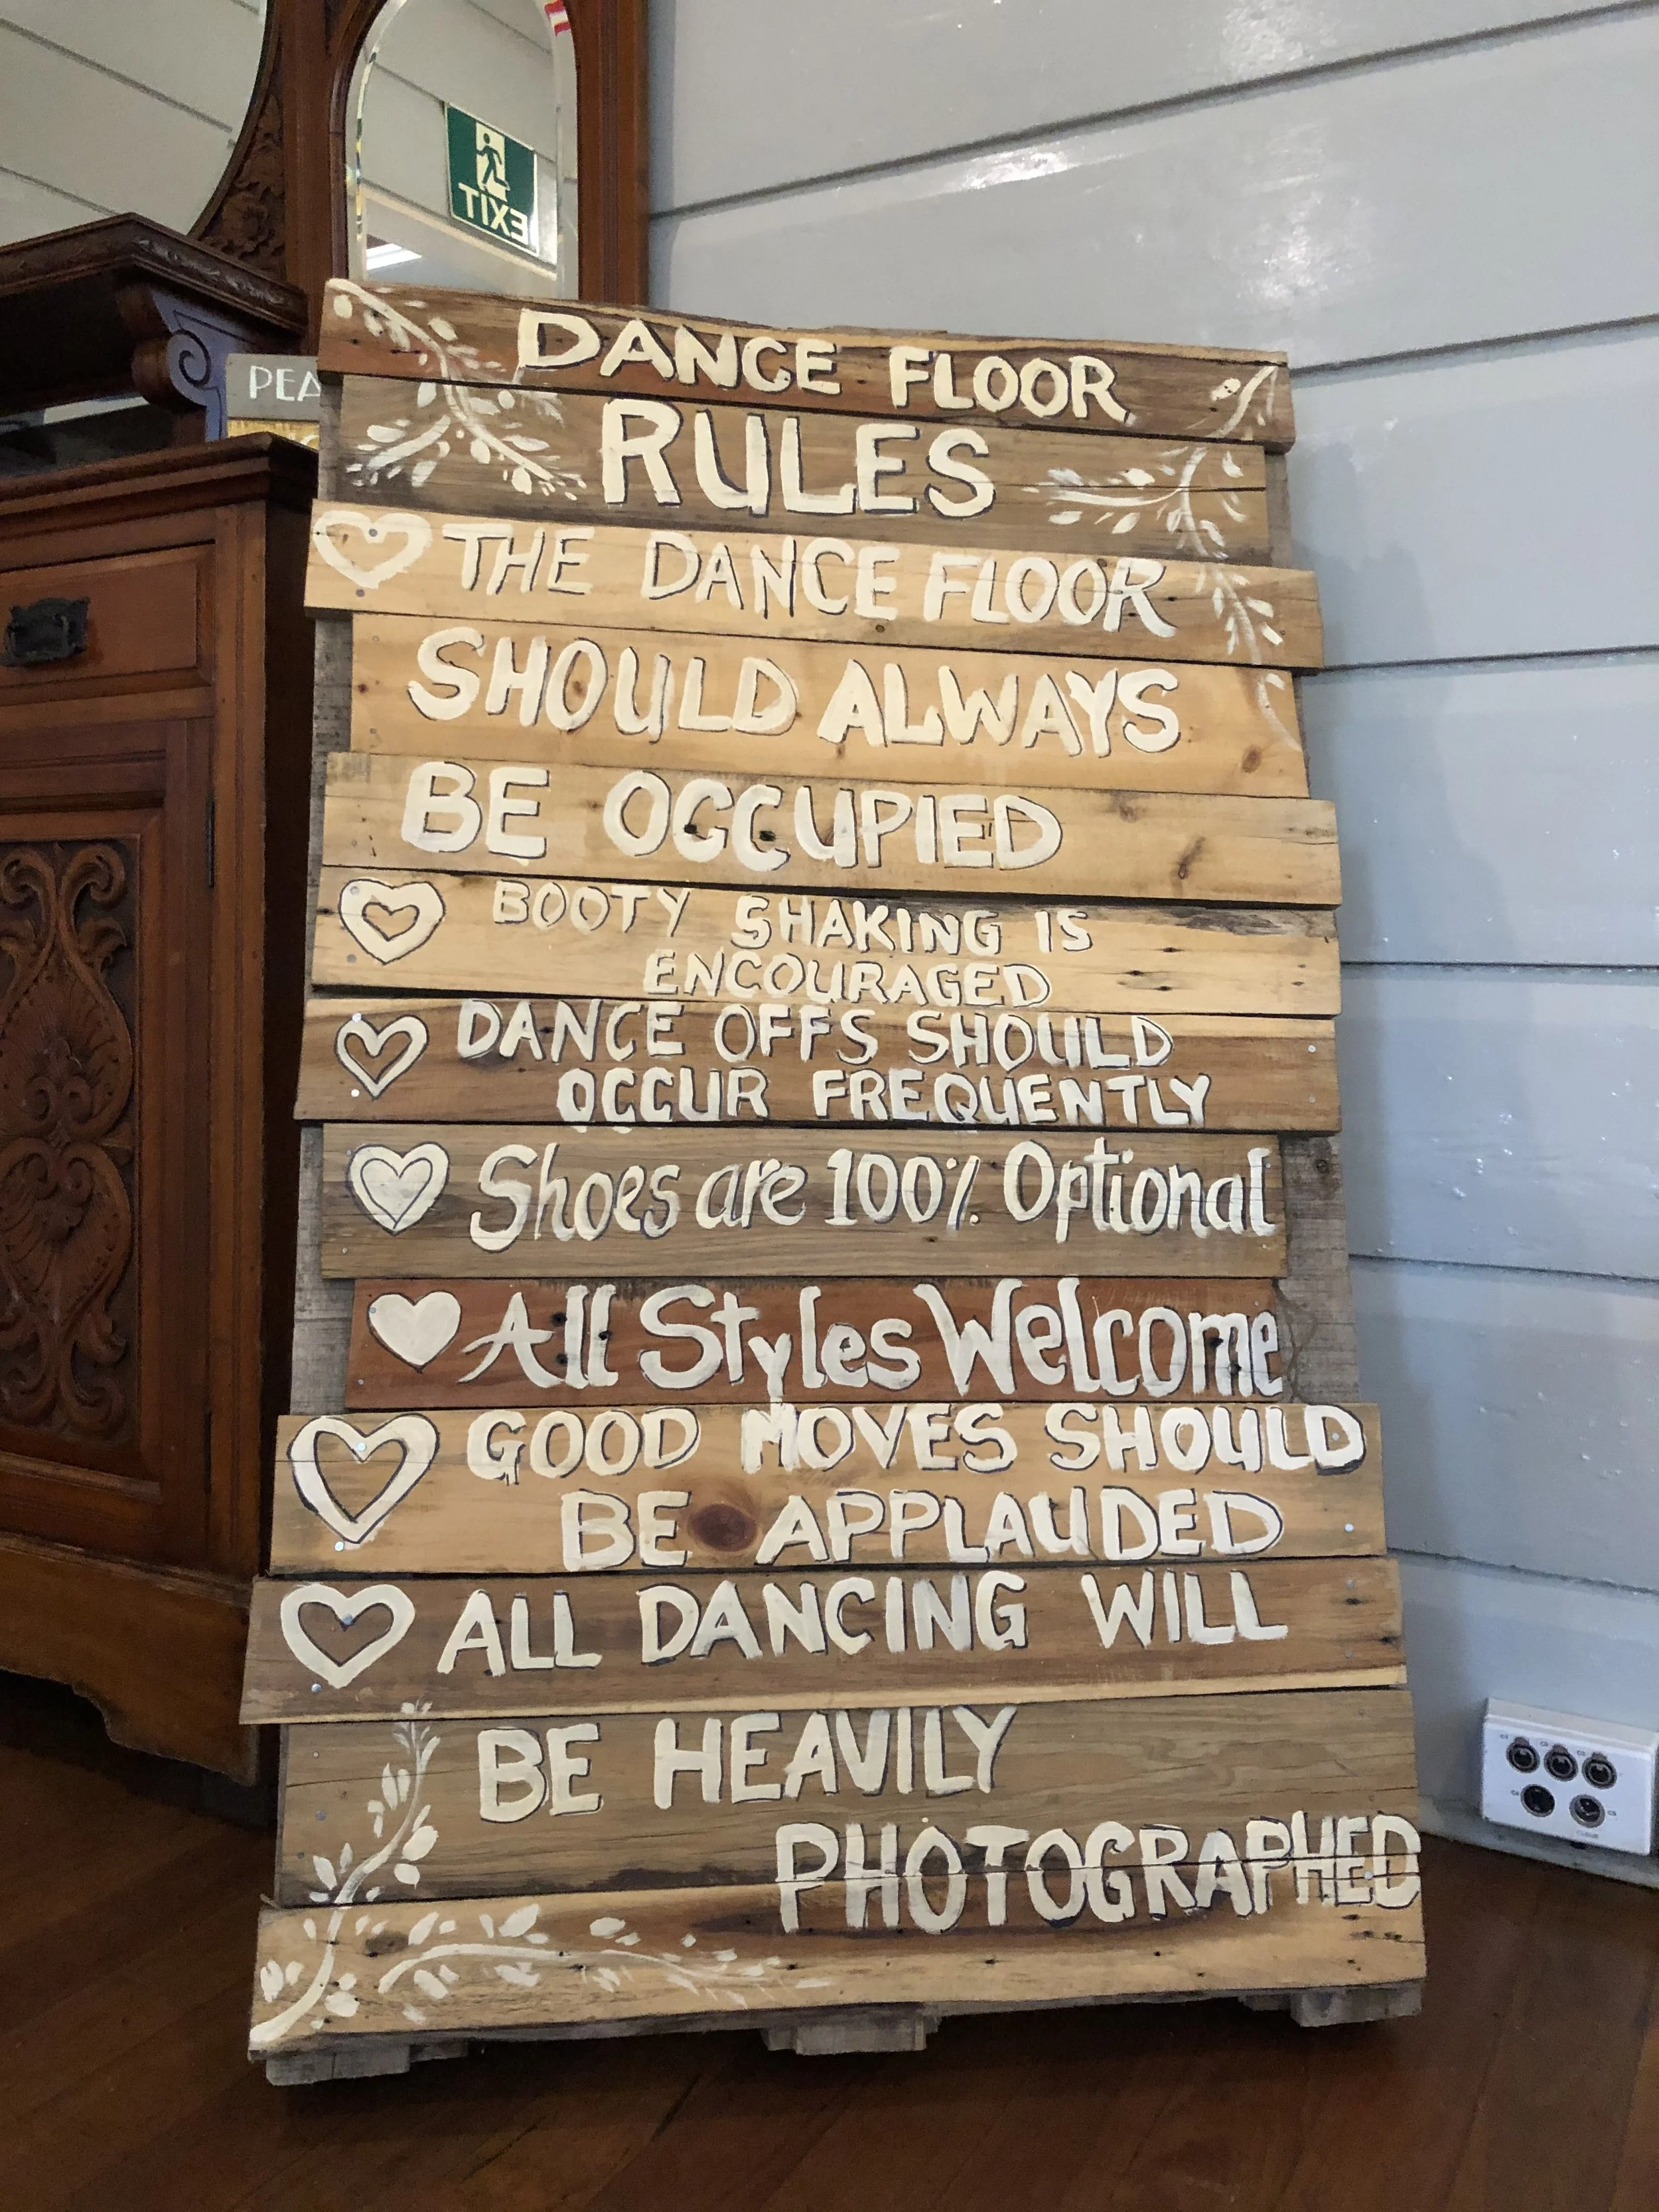 EXIT
PEA
DANCE FLOOR
RULES
THE DANCE FLOOR
SHOULD ALWAYS
BE OCCUPIED
BOOTY SHAKING IS
ENCOURAGED
DANCE OFFS SHOULD
OCCUR FREQUENTLY
Shoes are 100% Optional
All Styles Welcome
GOOD MOVES SHOULD
BE APPLAUDED
ALL DANCING WILL
BE HEAVILY
PHOTOGRAPHED